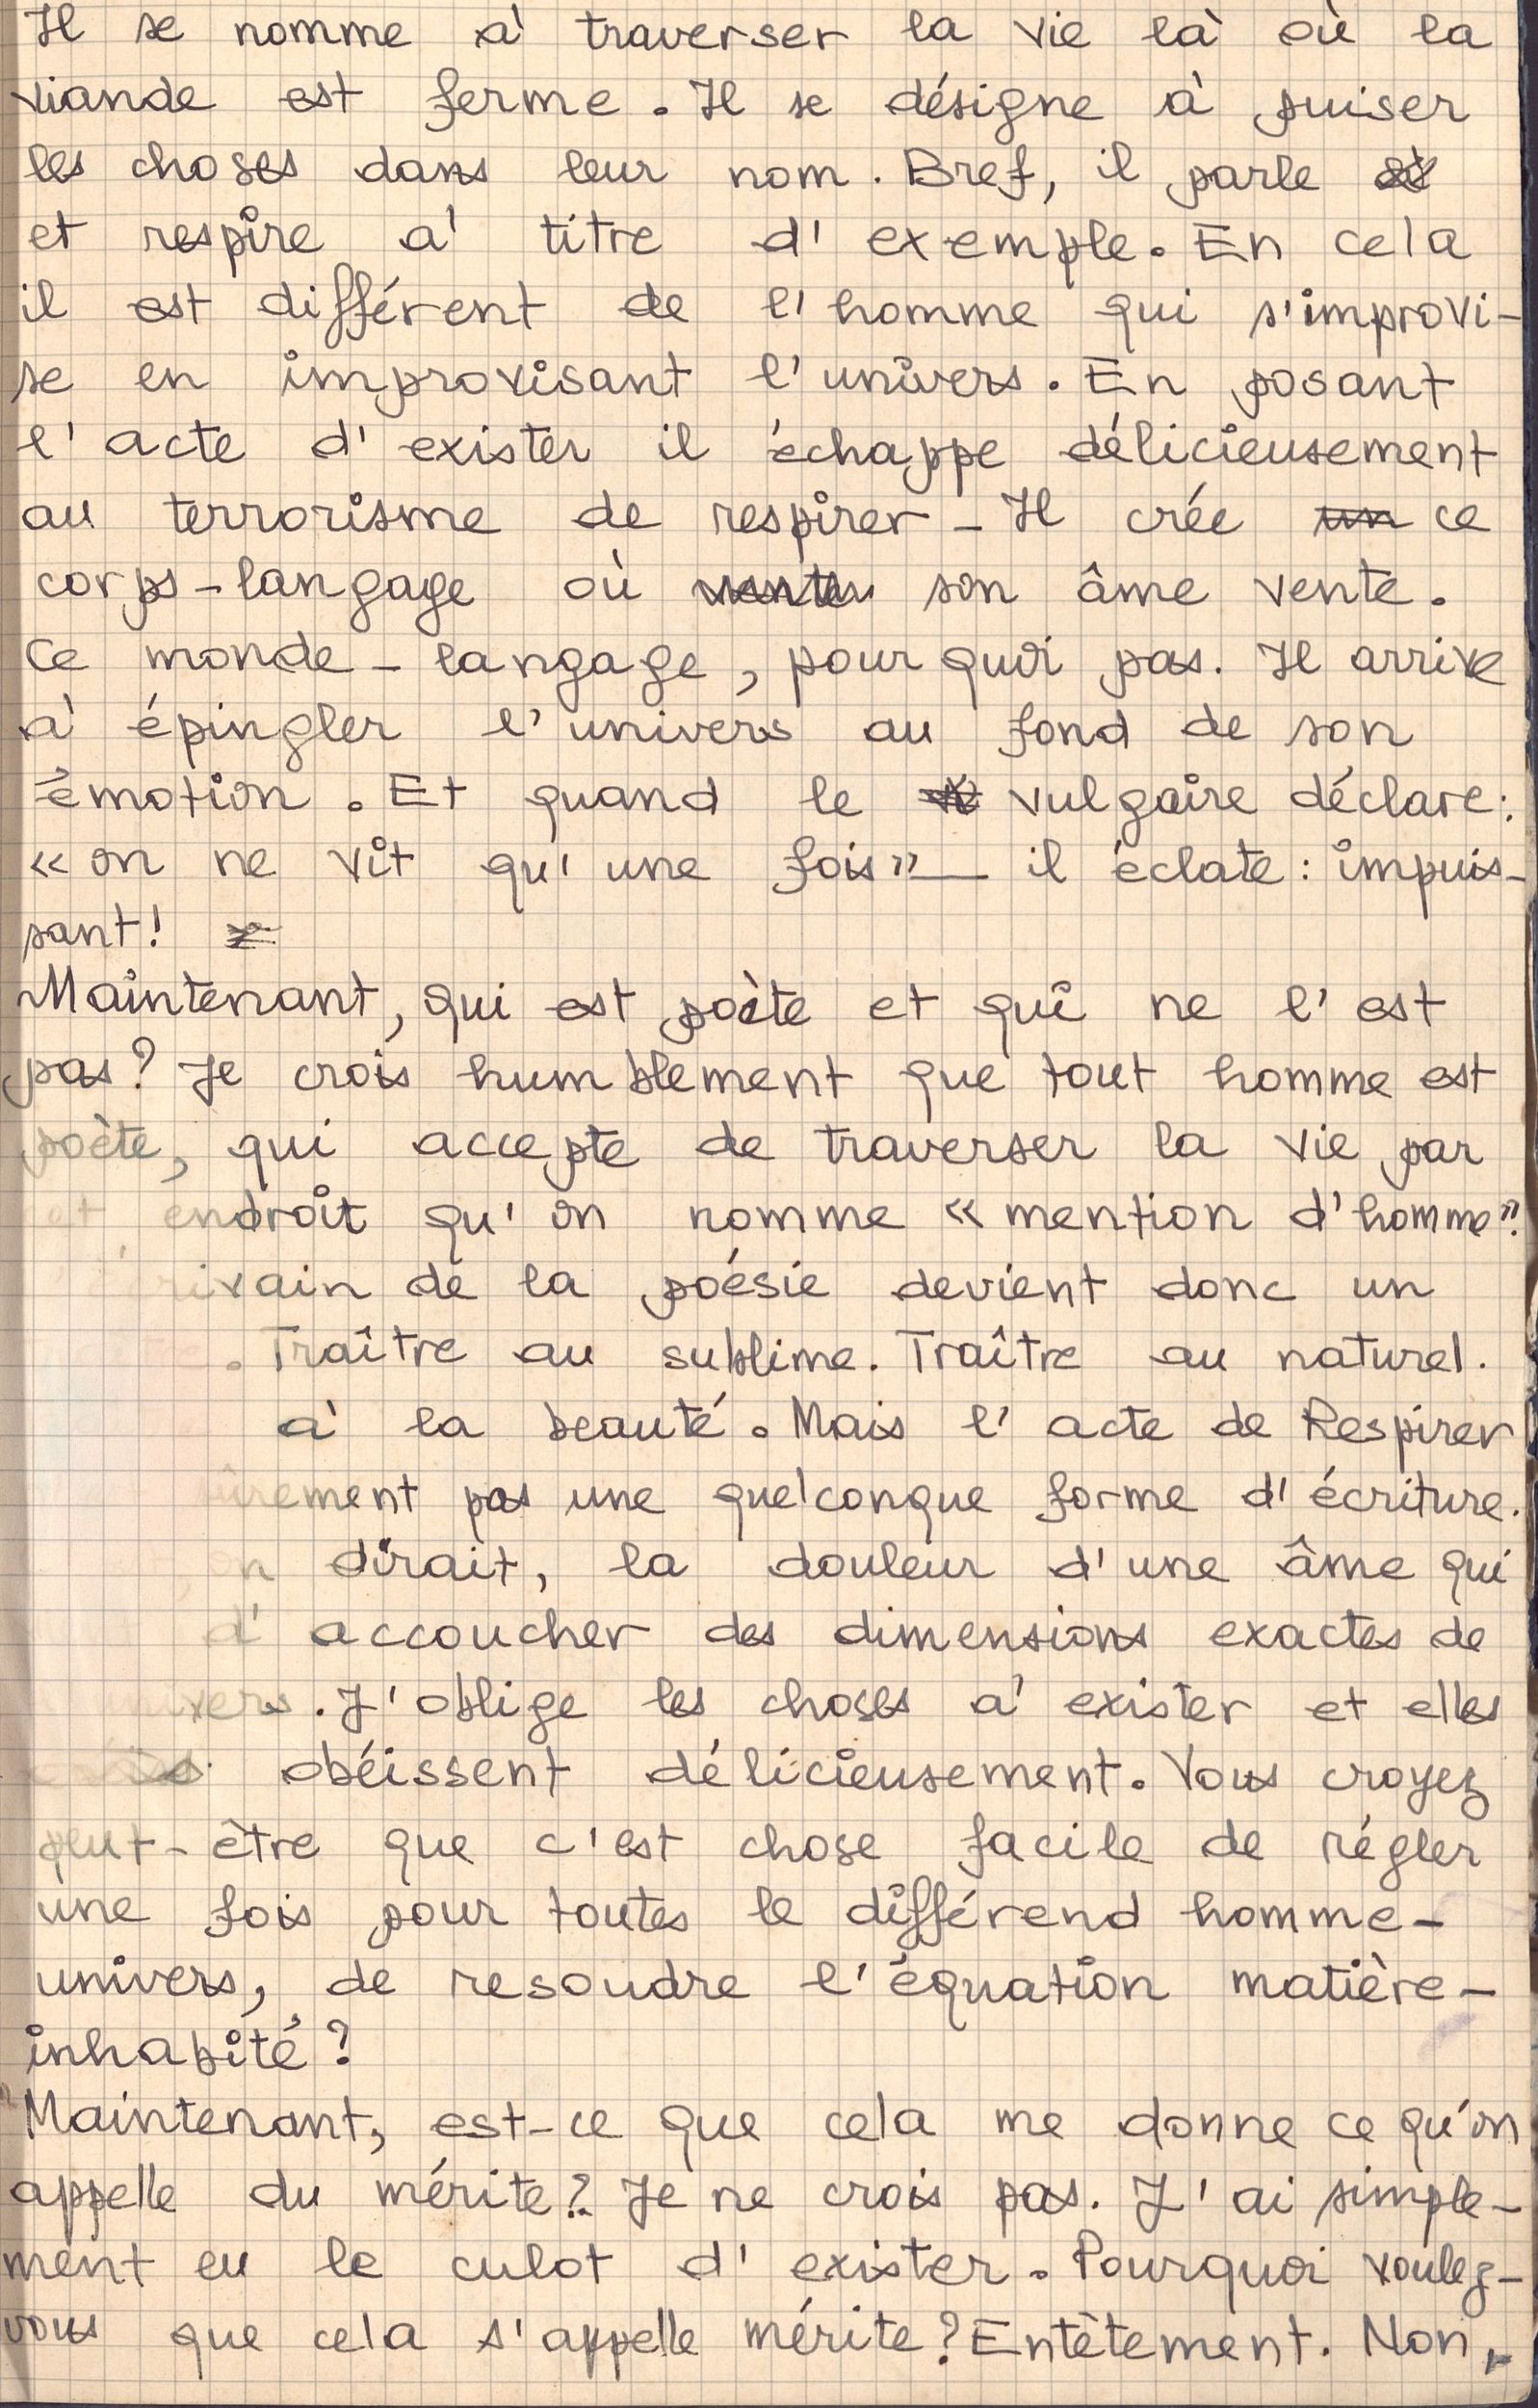 Il se nomme à traverser la vie là où la
viande est ferme. Il se désigne à puiser
les choses dans leur nom. Bref, il parle
et respire à titre d'exemple. En cela
il est différent de l'homme qui s'improvi-
se en improvisant l'univers. En posant
l'acte d'exister il échappe délicieusement
au terrorisme de respirer - Il crée un ce
corps-langage où son âme vente.
Ce monde-langage, pourquoi pas. Il arrive
à épingler l'univers au fond de son
émotion. Et quand le vulgaire déclare:
« on ne vit qu'une fois » — il éclate : impuis-
sant!
Maintenant, qui est poète et qui ne l'est
pas? Je crois humblement que tout homme est
poète, qui accepte de traverser la vie par
cet endroit qu'on nomme « mention d'homme ».
écrivain de la poésie devient donc un
. Traître au sublime. Traître au naturel.
à la beauté. Mais l'acte de Respirer
sûrement pas une quelconque forme d'écriture.
on dirait, la douleur d'une âme qui
d'accoucher des dimensions exactes de
univers. J'oblige les choses à exister et elles
obéissent délicieusement. Vous croyez
peut-être que c'est chose facile de régler
une fois pour toutes le différend homme-
univers, de resoudre l'équation matière-
inhabité ?
Maintenant, est-ce que cela me donne ce qu'on
appelle du mérite? Je ne crois pas. J'ai simple-
ment eu le culot d'exister. Pourquoi voulez-
vous que cela s'appelle mérite? Entêtement. Non,